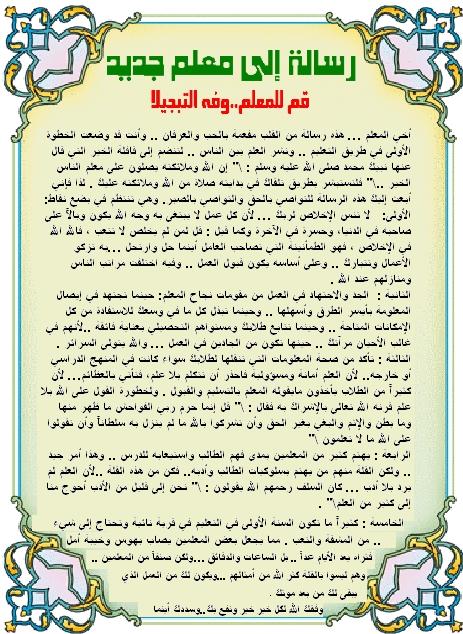 رسالة إلى معلم جديد
قم للمعلم..وفه التبجيلا
أخي المعلم ... هذه رسالة من القلب مفعمة بالحب والعرفان .. وأنت قد وضعت الخطوة
الأولى في طريق التعليم .. ونشر العلم بين الناس .. لتنضم إلى قافلة الخير التي قال
عنها نبيك محمد صلى الله عليه وسلم : \" إن الله وملائكته يصلون على معلم الناس
الخير ..\" فلتستبشر بطريق تلقاك في بدايته صلاة من الله وملائكته عليك . لذا فإني
أبعث إليك هذه الرسالة للتواصي بالحق والتواصي بالصبر . وهي تنتظم في بضع نقاط:
الأولى: لا تنس الإخلاص لربك ... لأن كل عمل لا يبتغى به وجه الله يكون وبالاً على
صاحبه في الدنيا، وحسرة في الآخرة وكما قيل : قل لمن لم يخلص لا تتعب ، فالله الله
في الإخلاص ، فهو الطمأنينة التي تصاحب العامل أينما حل وارتحل ...به تزكو
الأعمال وتتبارك .. وعلى أساسه يكون قبول العمل .. وفيه اختلفت مراتب الناس
ومنازلهم عند الله .
الثانية : الجد والاجتهاد في العمل من مقومات نجاح المعلم: حينما تجتهد في إيصال
المعلومة بأيسر الطرق وأسهلها .. وحينما تبذل كل ما في وسعك للاستفادة من كل
الإمكانات المتاحة .. وحينما تتابع طلابك ومستواهم التحصيلي بعناية فائقة ..لأنهم في
غالب الأحيان مرآتك .. حينها تكون من الجادين في العمل ... والله يتولى السرائر .
الثالثة : تأكد من صحة المعلومات التي تنقلها لطلابك سواء كانت في المنهج الدراسي
أو خارجه.. لأن العلم أمانة ومسؤولية فاحذر أن تتكلم بلا علم، فتأتي بالعظائم... لأن
كثيراً من الطلاب يأخذون مايقوله المعلم بالتسليم والقبول . ولخطورة القول على الله بلا
علم قرنه الله تعالى بالإشراك به فقال : \" قل إنما حرم ربي الفواحش ما ظهر منها
وما بطن والإثم والبغي بغير الحق وأن تشركوا بالله ما لم ينزل به سلطاناً وأن تقولوا
على الله ما لا تعلمون \"
الرابعة : يهتم كثير من المعلمين بمدى فهم الطالب واستيعابه للدرس .. وهذا أمر جيد
.. ولكن القلة منهم من يهتم بسلوكيات الطالب وأدبه.. فكن من هذه القلة ..لأن العلم لم
يرد بلا أدب ... كان السلف رحمهم الله يقولون : \" نحن إلى قليل من الأدب أحوج منا
إلى كثير من العلم\" .
الخامسة : كثيراً ما تكون السنة الأولى في التعليم في قرية نائية وتحتاج إلى شيء
.. من المشقة والتعب . مما يجعل بعض المعلمين يصاب بهوس وخيبة أمل
فتراه يعد الأيام عداً .. بل الساعات والدقائق ...ولكن صنفاً من المعلمين ..
وهم ليسوا بالقلة كثر الله من أمثالهم ..ويكون لك من العمل الذي
يبقى لك من بعد موتك .
وفقك الله لكل خير خير ونفع بك..وسددك أينما